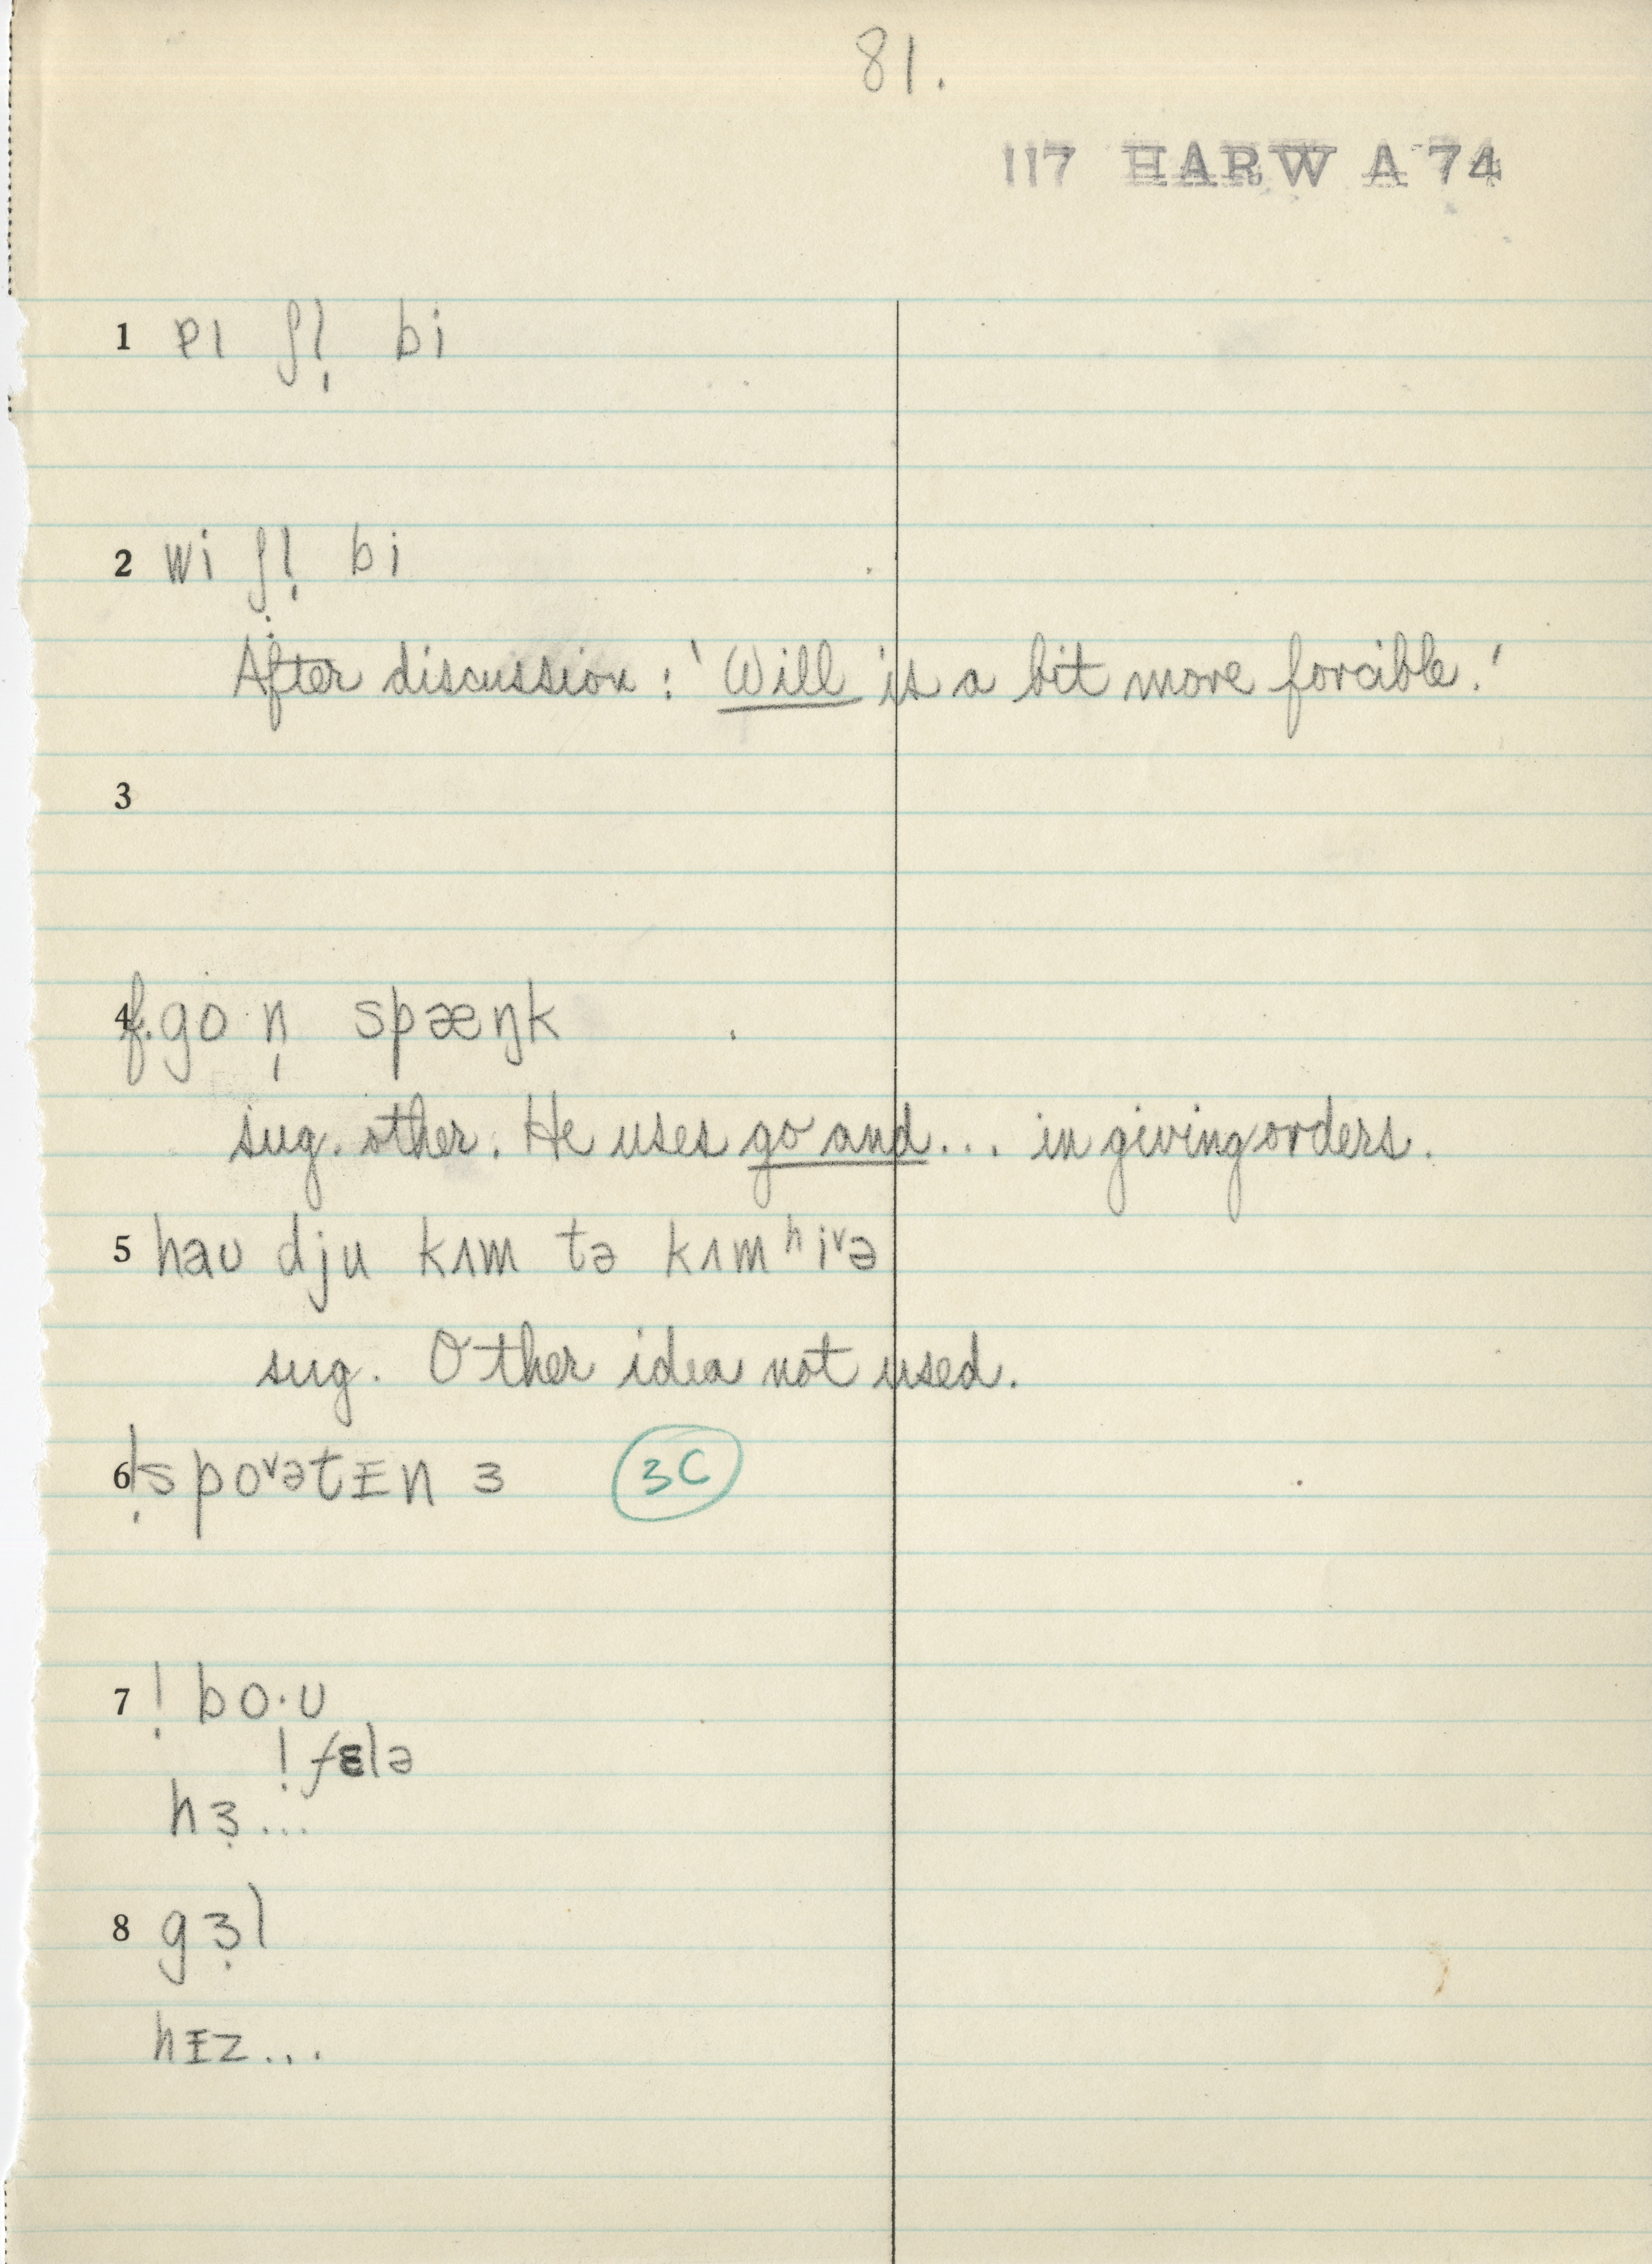 81.
117 HARW A 74
1 ʃl̩ bi
2 wi ʃl̩ bi
After discussion: 'Will is a bit more forcible.'
3
4 f. go n̩ spæŋk
sug. other. He uses go and... in giving orders.
5 haʊ dju kʌm tə kʌm ʰiᵛə
sug. Other idea not used.
6 !spoᵛətɪn ɜ 3C
7 ! bo·ʊ
! fɛlə
hɜ̣...
8 gɜ̣l
hɪz...